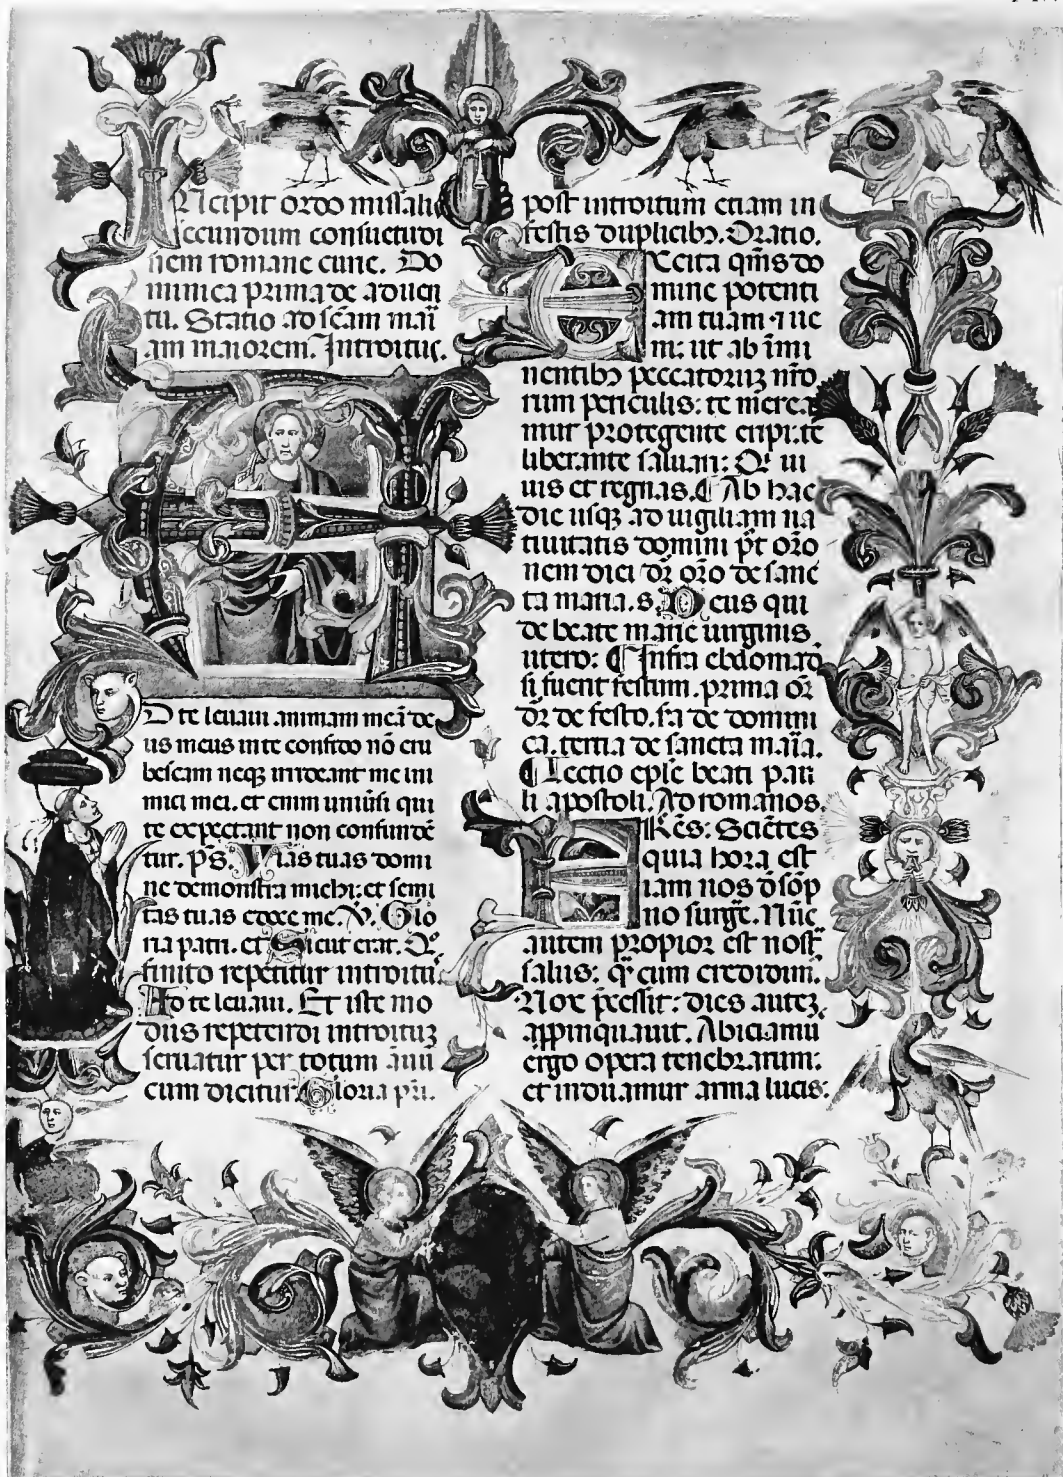 Incipit ordo missalis
secundum consuetudi
nem romane curie. Do
minica prima de aduen
tu. Statio ad scam mari
am maiorem. Introitus.
AD te leuaui animam meā de
us meus in te confido nō eru
bescam neqꝫ irrideant me ini
mici mei. et enim uniūsi qui
te expectant non confundē
tur. ps. Vias tuas domi
ne demonstra michi: et semi
tas tuas edoce me. V. Glo
ria patri. et Sicut erat. Qº
finito repetitur introitus
Ad te leuaui. Et iste mo
dus repetendi introituꝫ
seruatur per totum ānū
cum dicitur. Gloria pri.
post introitum etiam in
festis duplicibꝫ. Oratio.
Excita qms do
mine potenti
am tuam ⁊ ue
ni: ut ab īmi
nentibꝫ peccatoruꝫ nro
rum periculis: te mere a
mur protegente eripi: te
liberante saluari: Qi ui
uis et regnas. ¶ Ab hac
die usqꝫ ad uigiliam na
tiuitatis domini pt oro
nem diei dr oro de sanc
ta maria. s. Deus qui
de beate marie uirginis
utero: ¶ Infra ebdomadā
si fuerit festum. prima or
dr de festo. sa de domini
ca. tertia de sancta maria.
¶ Lectio eple beati pau
li apostoli. Ad romanos.
FRēs: Sciētes
quia hora est
iam nos d sōp
no surge. Nūc
autem propior est nost
salus: qr cum credidim.
Nox pcessit: dies auteꝫ
appinquauit. Abiciamus
ergo opera tenebrarum:
et induamur arma lucis: